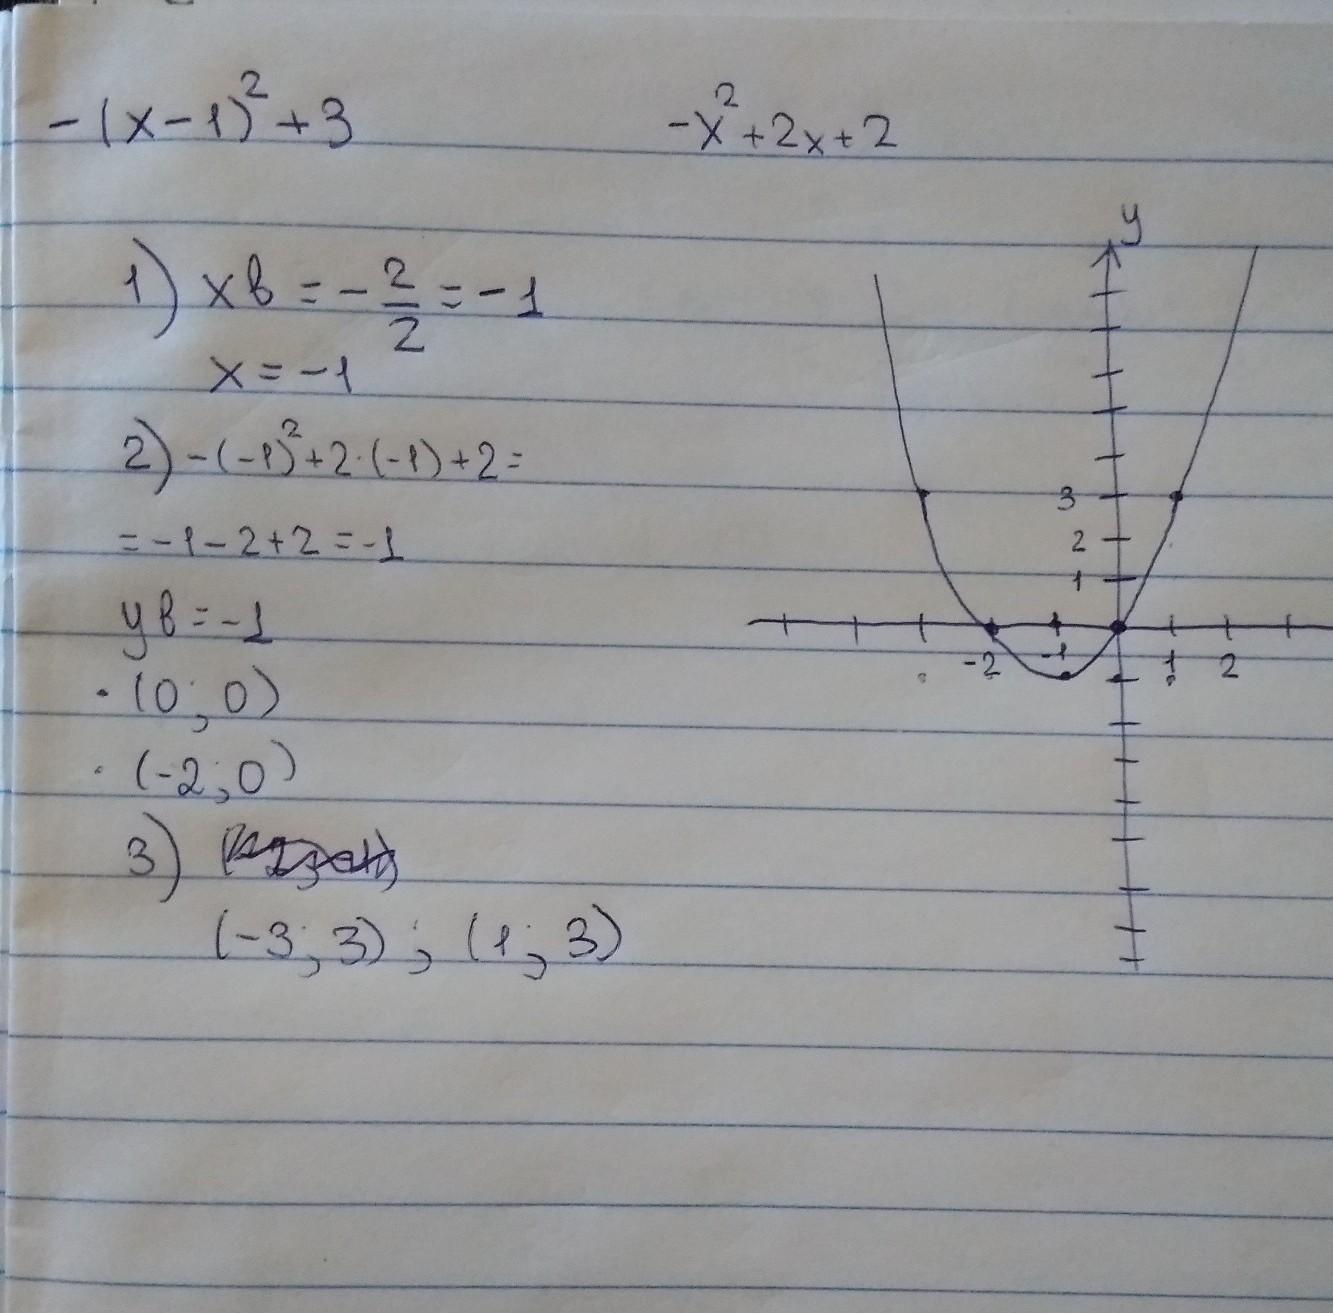 -(x-1)²+3
-x²+2x+2
1) xв = -2/2 = -1
x = -1
2) -(-1)²+2·(-1)+2=
= -1-2+2 = -1
yв = -1
· (0; 0)
· (-2; 0)
3)
(-3; 3); (1; 3)
y
3
2
1
-2 -1 1 2